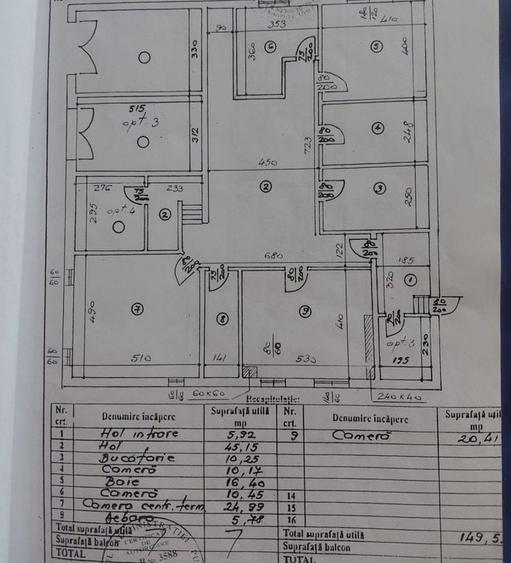 353
410
90
360
6
75/200
5
400
330
80/200
515
opt 3
312
723
80/200
4
248
450
2
80/200
3
250
276
75/200
233
295
opt 4
2
680
122
80/200
185
320
1
80/200
75/200
80/200
90/200
90/200
490
7
8
9
410
opt 3
230
510
141
80/60
530
195
60x60
240x40
Recapitulație:
Nr. crt. Denumire încăpere Suprafață utilă mp Nr. crt. Denumire încăpere Suprafață utilă mp
1 Hol intrare 5,92 9 Cameră 20,41
2 Hol 45,15
3 Bucătărie 10,25
4 Cameră 10,17
5 Baie 16,40
6 Cameră 10,45 14
7 Camera centr. term 24,99 15
9 Debara 5,78 16
Total suprafață utilă Total suprafață utilă 149,5
Suprafață balcon Suprafață balcon
TOTAL TOTAL